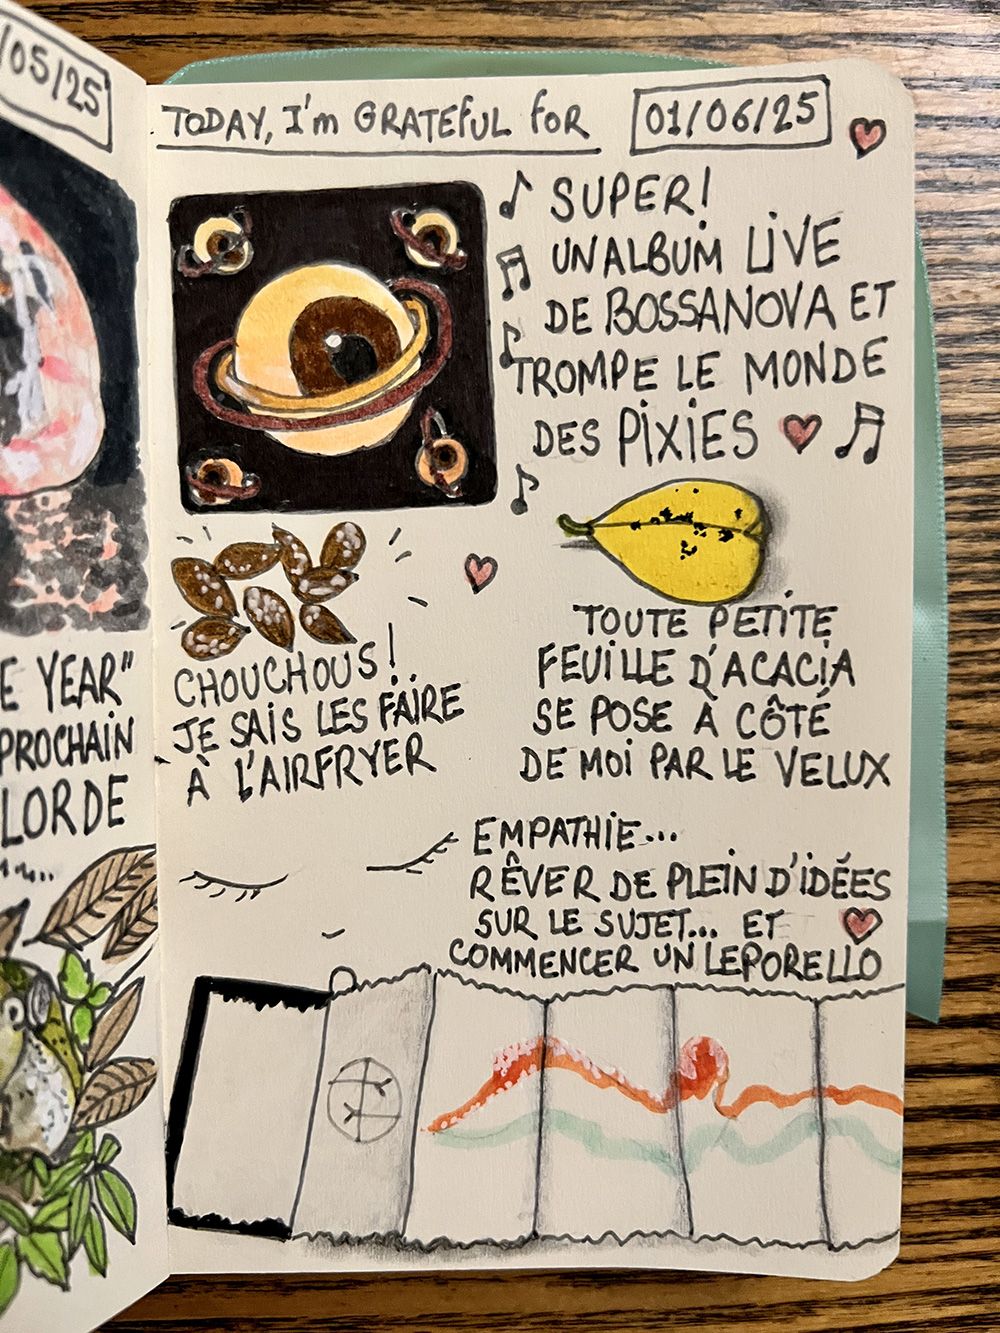 /05/25
E YEAR"
PROCHAIN
LORDE
TODAY, I'm GRATEFUL FOR
01/06/25
SUPER!
UN ALBUM LIVE
DE BOSSANOVA ET
TROMPE LE MONDE
DES PIXIES
CHOUCHOUS!
JE SAIS LES FAIRE
À L'AIRFRYER
TOUTE PETITE
FEUILLE D'ACACIA
SE POSE À CÔTÉ
DE MOI PAR LE VELUX
EMPATHIE...
RÊVER DE PLEIN D'IDÉES
SUR LE SUJET... ET
COMMENCER UN LEPORELLO